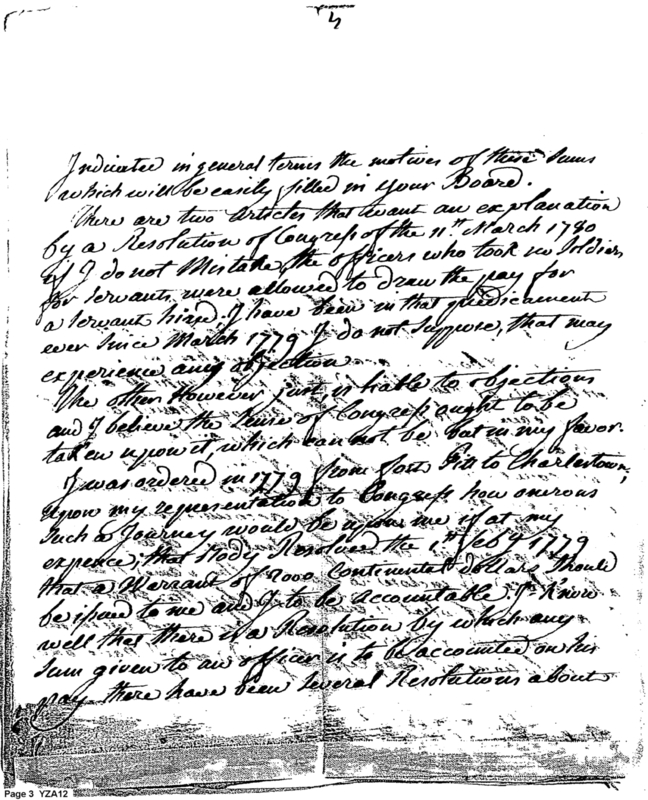 4
Indicated in general terms the motives of these Sums
which will be easily filled in your Board.
There are two articles that want an explanation
by a Resolution of Congress of the 11th March 1780
if I do not Mistake, the officers who took no Soldiers
for Servants were allowed to draw the pay for
a Servant hired. I have been in that predicament
ever Since March 1779 I do not Suppose, that may
experience any objection
The other However just is liable to objections
and I believe the Sense of Congress ought to be
taken upon it, which can not be but in my favor.
I was ordered in 1779 from fort Pitt to Charlestown,
upon my representation to Congress how onerous
Such a Journey would be upon me if at my
expence, that Body Resolved the 1st feby 1779
that a Warrant of 2000 Continental dollars Should
be issued to me and I to be accountable. I Know
well that there is a Resolution by which any
Sum given to an officer is to be accounted on his
pay there have been Several Resolutions about
Page 3 YZA12